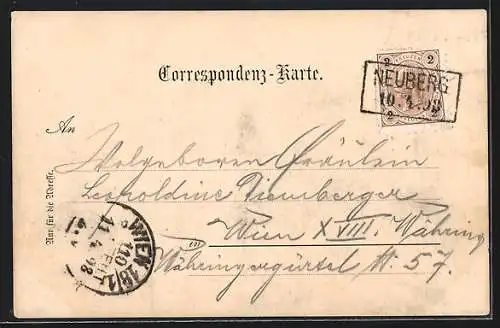 Correspondenz-Karte.
2 2
NEUBERG
10.4.98
2 2
An
Wolgeboren Fräulein
Leopoldine
Wien XVIII. Währing
in
Währingergürtel N. 57.
Nur für die Adresse.
WIEN 18/1
110
11.4.98